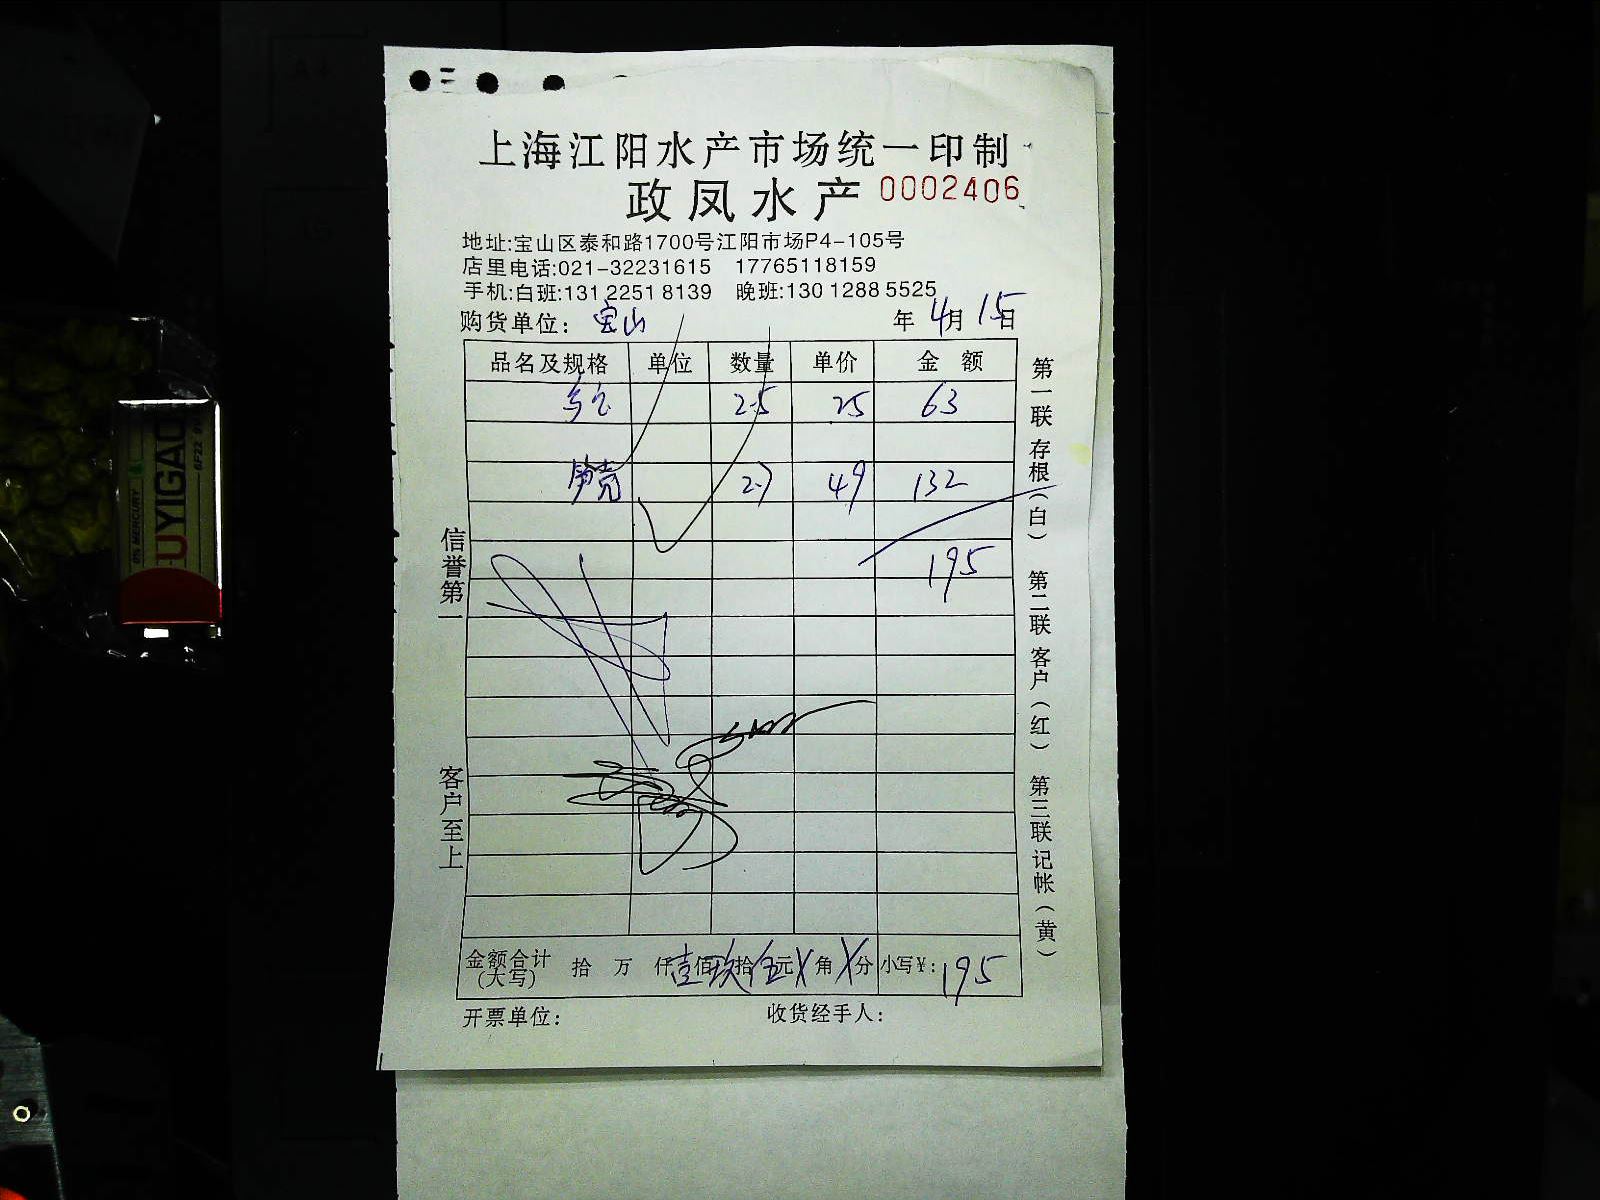 上海江阳水产市场统一印制
政凤水产 0002406
地址:宝山区泰和路1700号江阳市场P4-105号
店里电话:021-32231615 17765118159
手机:白班:131 2251 8139 晚班:130 1288 5525
购货单位: 宝山 年 4月 15日
品名及规格 单位 数量 单价 金额
2.5 25 63
笋壳 2.7 49 132
195
金额合计(大写) 拾 万 仟壹佰玖拾伍元 角 分 小写¥: 195
开票单位: 收货经手人:
信誉第一
客户至上
第一联 存根(白) 第二联 客户(红) 第三联 记帐(黄)
0% MERCURY
UYIGAO
6F22